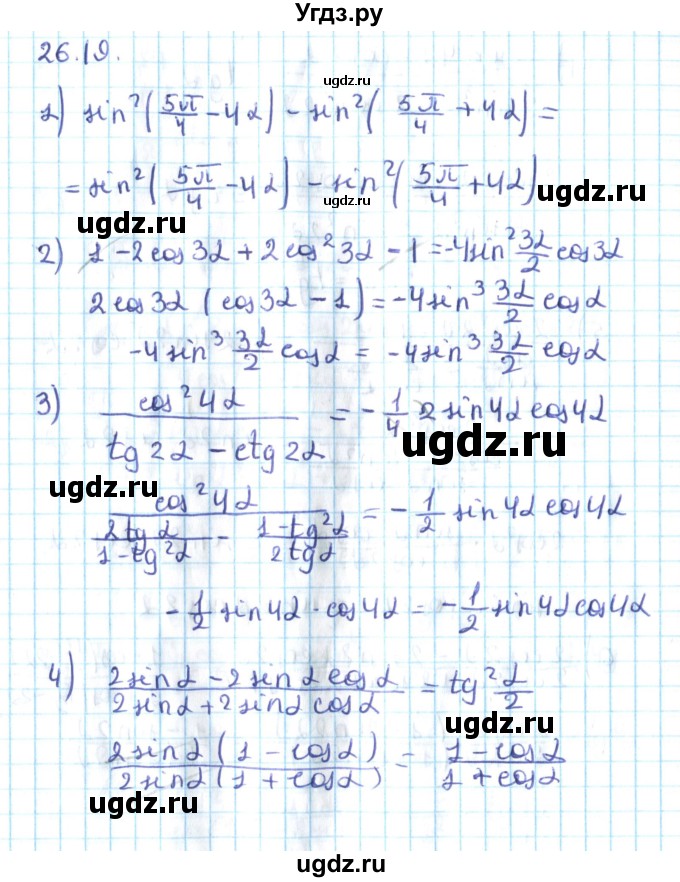 Угдз.ру
26.19.
ugdz.ru
1) sin²(5π/4 - 4α) - sin²(5π/4 + 4α) =
= sin²(5π/4 - 4α) - sin²(5π/4 + 4α)
ugdz.ru
ugdz.ru
2) 1 - 2cos3α + 2cos²3α - 1 = -4sin² 3α/2 cos3α
2cos3α (cos3α - 1) = -4sin³ 3α/2 cosα
-4sin³ 3α/2 cosα = -4sin³ 3α/2 cosα
3) cos²4α / (tg2α - ctg2α) = -1/4 2sin4αcos4α
ugdz.ru
ugdz.ru
cos²4α / (2tgα/(1-tg²α) - (1-tg²α)/2tgα) = -1/2 sin4αcos4α
-1/2 sin4α·cos4α = -1/2 sin4αcos4α
ugdz.ru
4) (2sinα - 2sinαcosα)/(2sinα + 2sinαcosα) = tg² α/2
2sinα(1 - cosα)/2sinα(1 + cosα) = (1 - cosα)/(1 + cosα)
ugdz.ru
ugdz.ru